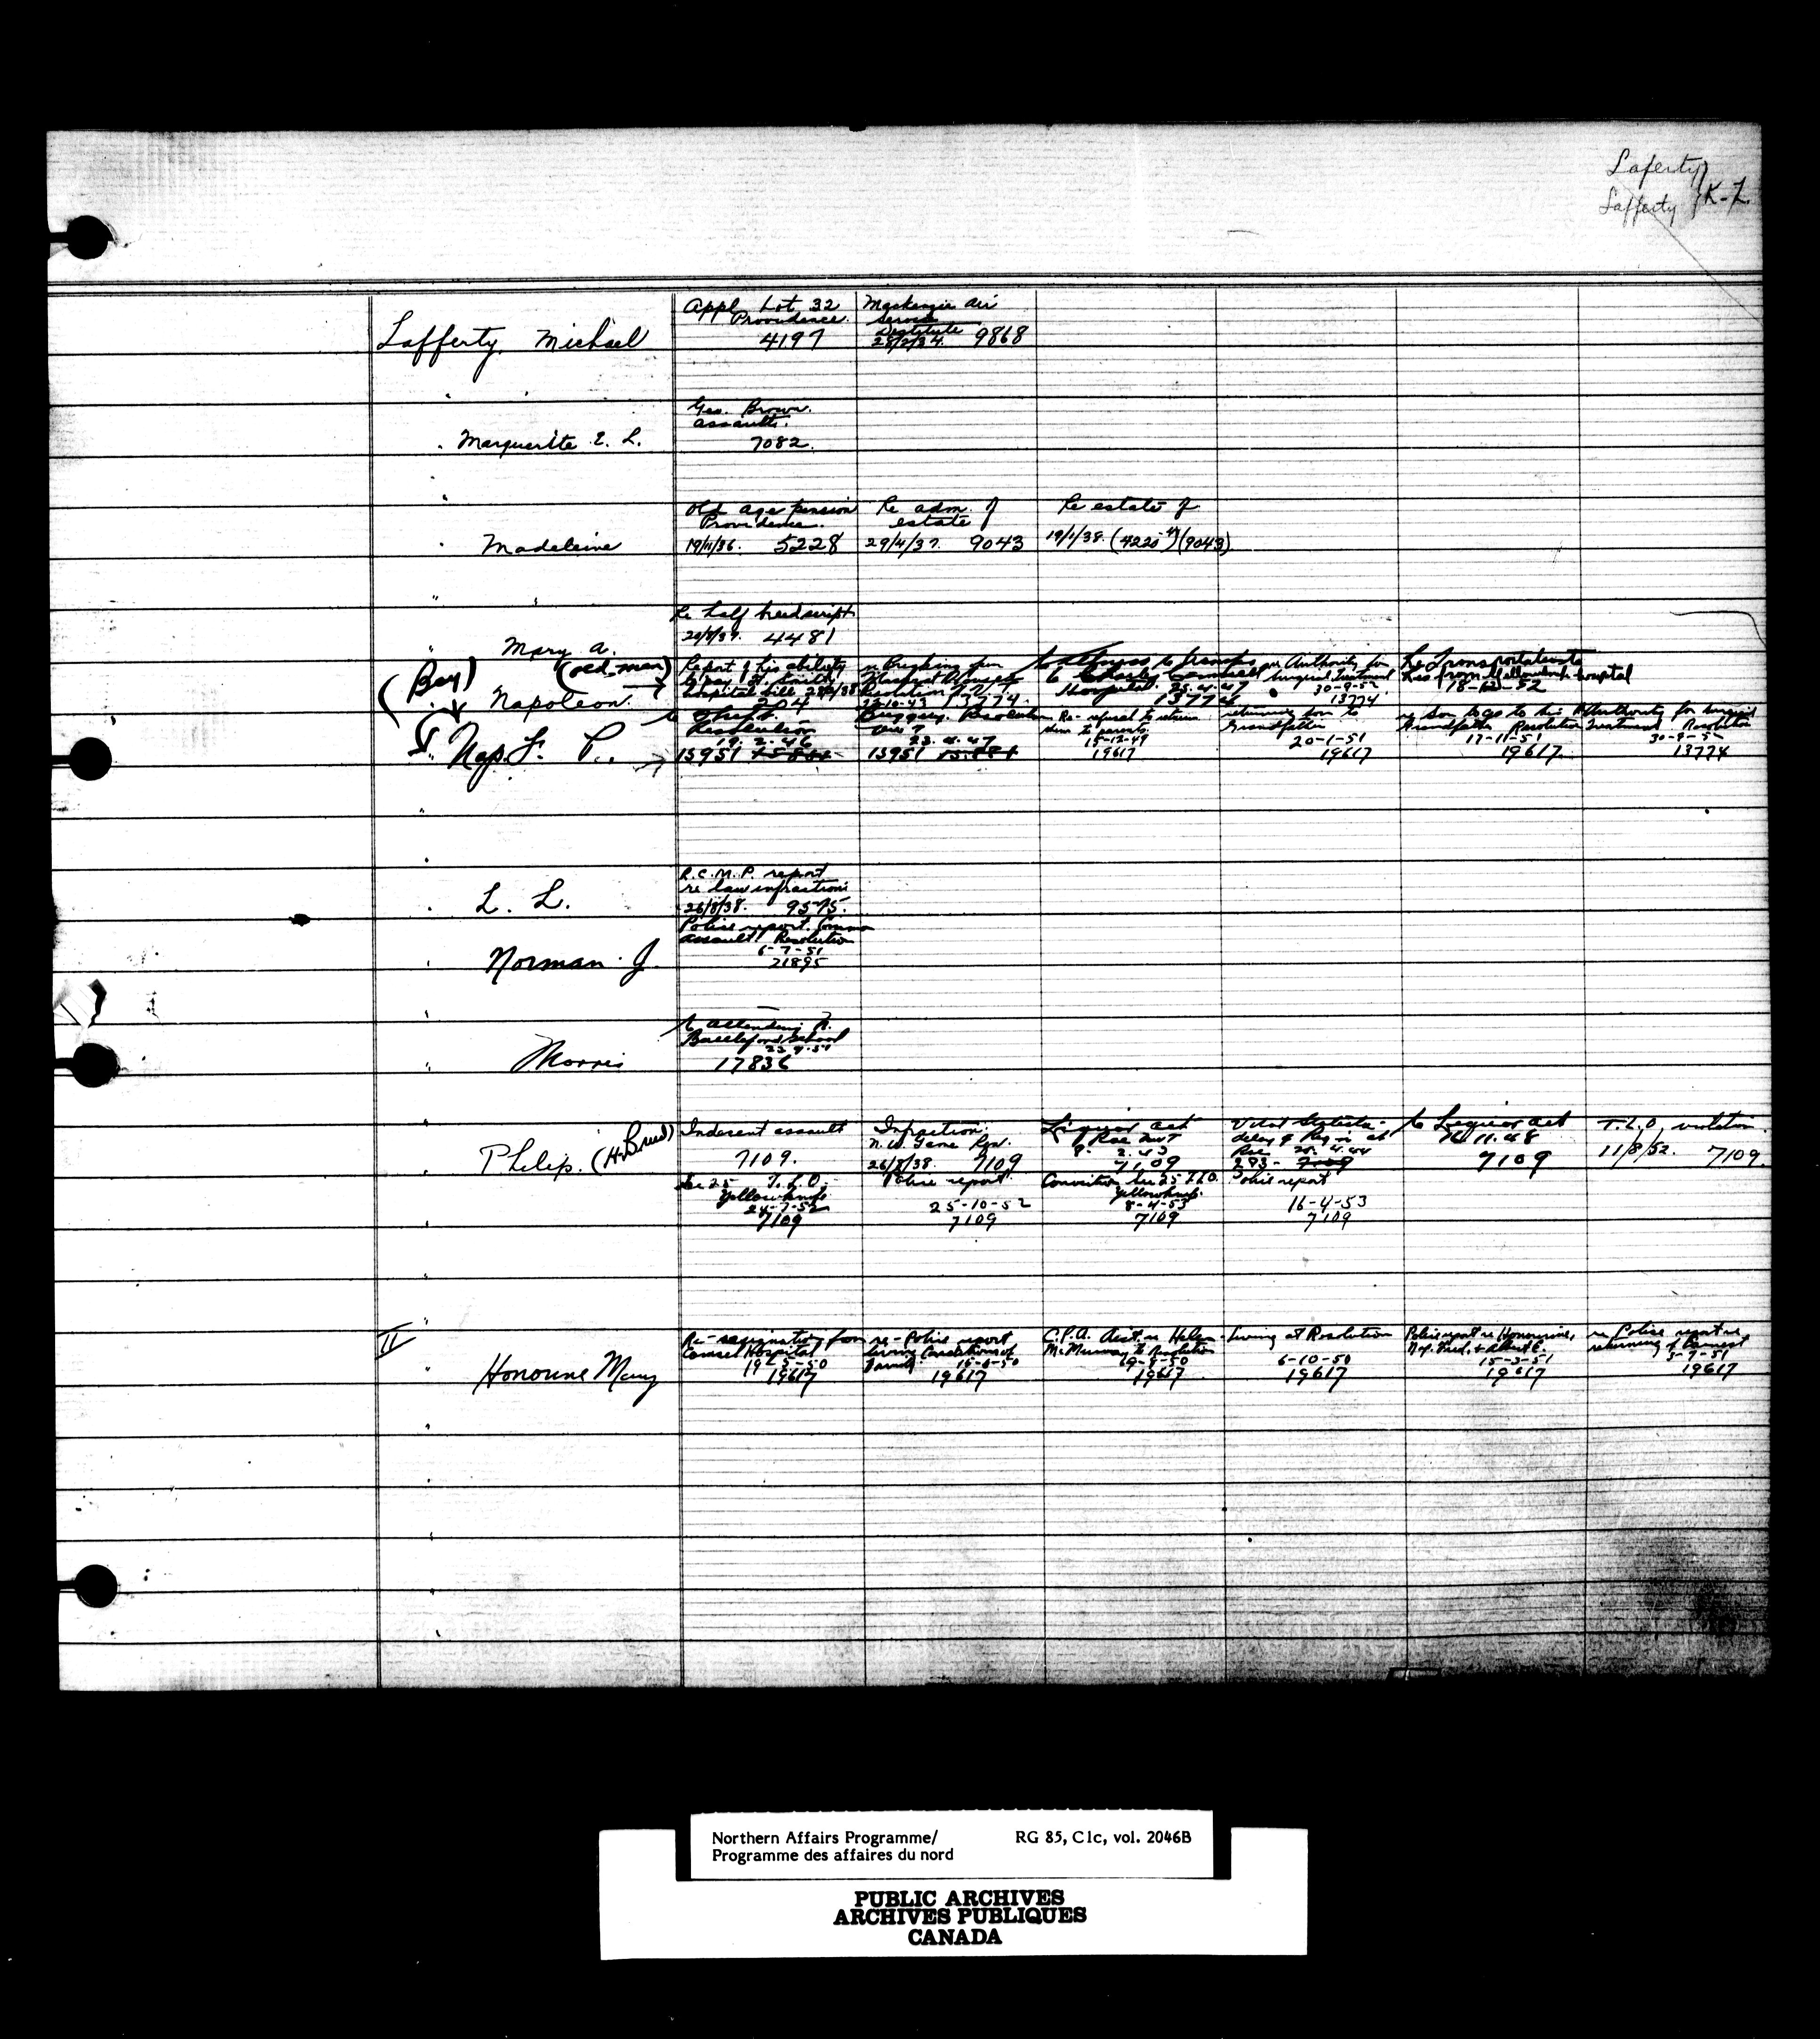 Laferty
Lafferty } K-Z
Lafferty, Michael
Appl Lot 32
Providence
4197
Mackenzie Air
Service
Destitute
28/2/34. 9868
" Marguerite E. L.
Geo. Brown.
assault.
7082.
" Madeleine
Old age pension
Providence.
19/11/36. 5228
Re adm. of
estate
29/4/37. 9043
Re estate of
19/1/38. (4220 ) (9043)
" Mary A.
Re half breed script
4481
(Boy) (old man)
Napoleon
Report of his ability
to pay
hospital bill
204
13774
Hospital 25-4-47
13774
re Authority for
Surgical Treatment
30-9-52
13774
Re Transportation
hospital
18-12-52
Nap. F. P.
Re Theft.
Resolution
19. 2. 46
13951
Buggery. Resolution
23. 4. 47
13951
Re- refusal to return
son to parents.
15-12-49
19617
returning son to
Grandfather
20-1-51
19617
re son to go to his
Grandfather Resolution
17-11-51
19617.
Authority for Surgical
Treatment Resolution
30-9-52
13774
" L. L.
R.C.M.P. report
re law infraction
26/8/38. 9575.
" Norman J.
Police report. Common
assault. Resolution
6-7-51
21895
" Morris
Re attending N.
Battleford School
17836
" Philip. (H. Breed)
Indecent assault
7109.
Infraction
N.W. Game Reg.
26/8/38. 7109
Liquor Act
Rae NWT
9. 2. 43
7109
Vital Statistics-
delay of Reg'n at
Rae 20. 4.44
293- 7109
Re Liquor Act
16.11.48
7109
T.L.O. violation.
11/8/52. 7109.
Sec 25 T.L.O.
Yellowknife
24-7-52
7109
Police report
25-10-52
7109
Conviction Sec 25 T.L.O.
Yellowknife.
8-4-53
7109
Police report
16-4-53
7109
II
" Honorine Mary
Re-resignation from
Camsell Hospital
19-5-50
19617
re-Police report
living Conditions of
Family 16-6-50
19617
C.P.A. Asst. re Helen
McMurray to Resolution
19-9-50
19617
Living at Resolution
6-10-50
19617
Police report re Honourine,
Nap. Fred, & Albert E.
15-3-51
19617
re Police report re
returning of Earnest
3-7-51
19617
Northern Affairs Programme/ RG 85, C1c, vol. 2046B
Programme des affaires du nord
PUBLIC ARCHIVES
ARCHIVES PUBLIQUES
CANADA